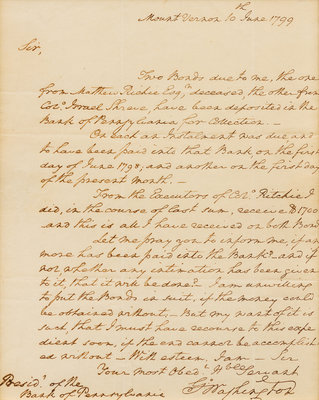 Mount Vernon 10th June 1799
Sir,
Two Bonds due to me, the one
from Matthew Ritchie Esqr deceased, the other from
Colo. Israel Shreve, have been deposited in the
Bank of Pennsylvania for Collection. —
On each an Instalment was due and
to have been paid into that Bank on the first
day of June 1798; and another on the first day
of the present month. —
From the Executors of Colo. Ritchie I
did, in the course of last sum, receive $1700
and this is all I have received on both Bonds
Let me pray you to inform me, if any
more has been paid into the Bank? and if
not, whether any intimation has been given
to it, that it will be done? I am unwilling
to put the Bonds in suit, if the money could
be obtained without, — But my want of it is
such, that I must have recourse to this expe
dient soon, if the end cannot be accomplish
ed without — With esteem, I am — Sir
Your most Obedt Hble Servant
Go Washington
Presidt. of the
Bank of Pennsylvania